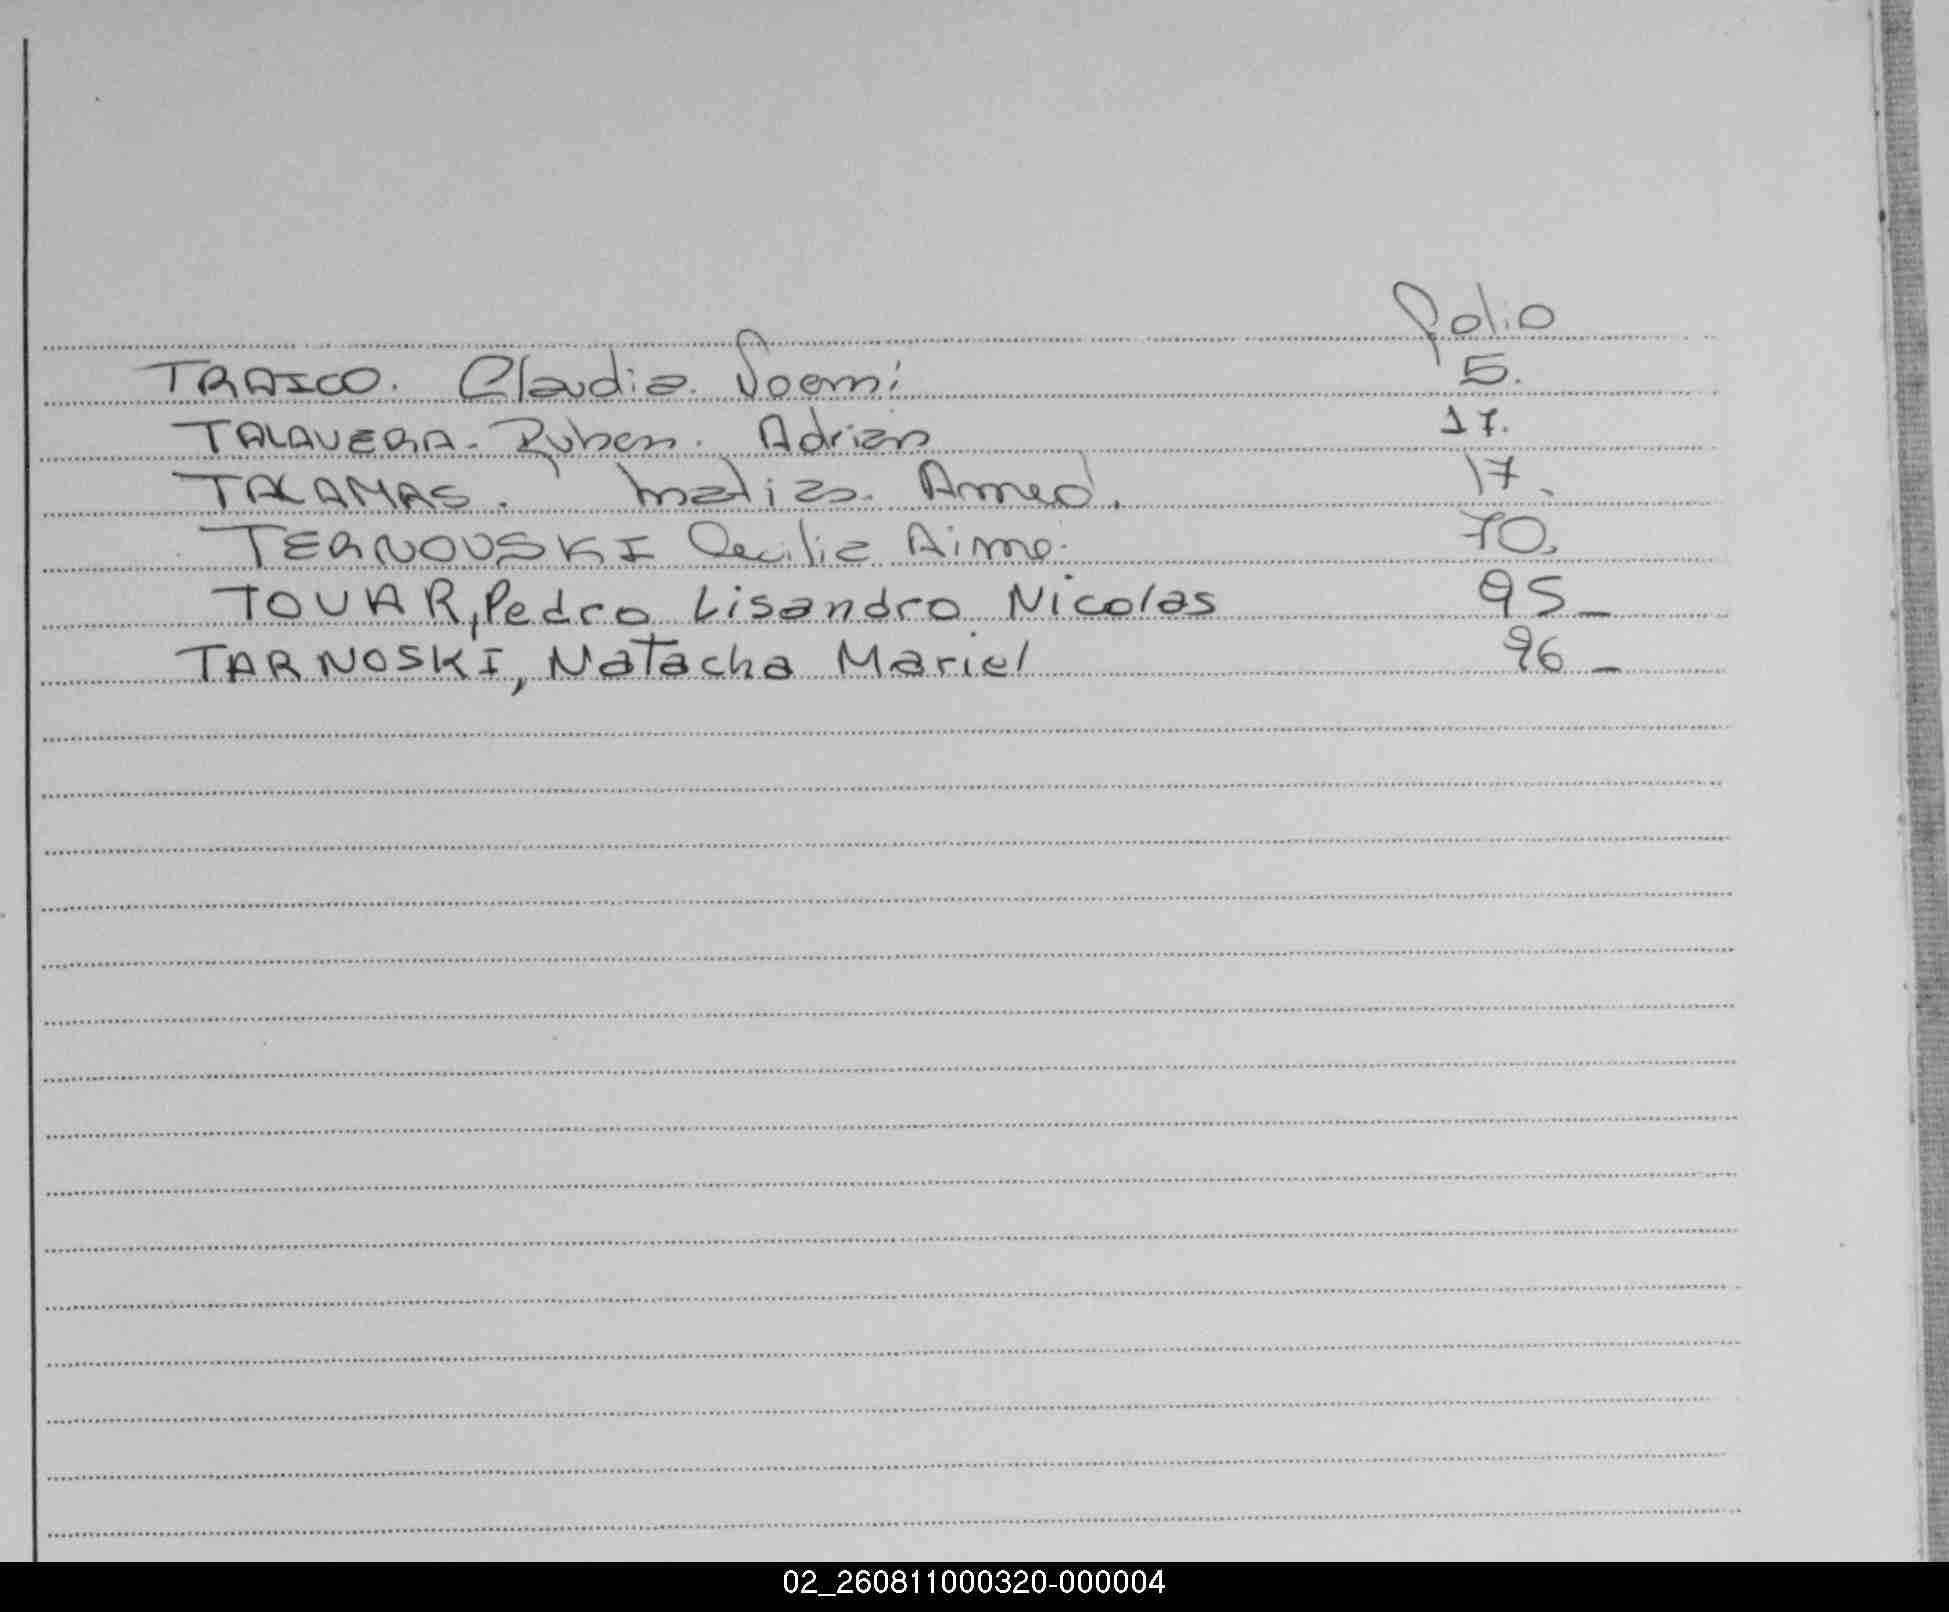 Folio
TRAICO. Claudia. Noemi 5.
TALAVERA. Ruben. Adrian 17.
TALAMAS. Matias. Armed. 17.
TERNOVSKI Cecilia Aime. 70.
TOVAR, Pedro Lisandro Nicolas 95_
TARNOSKI, Natacha Mariel 96_
02_260811000320-000004